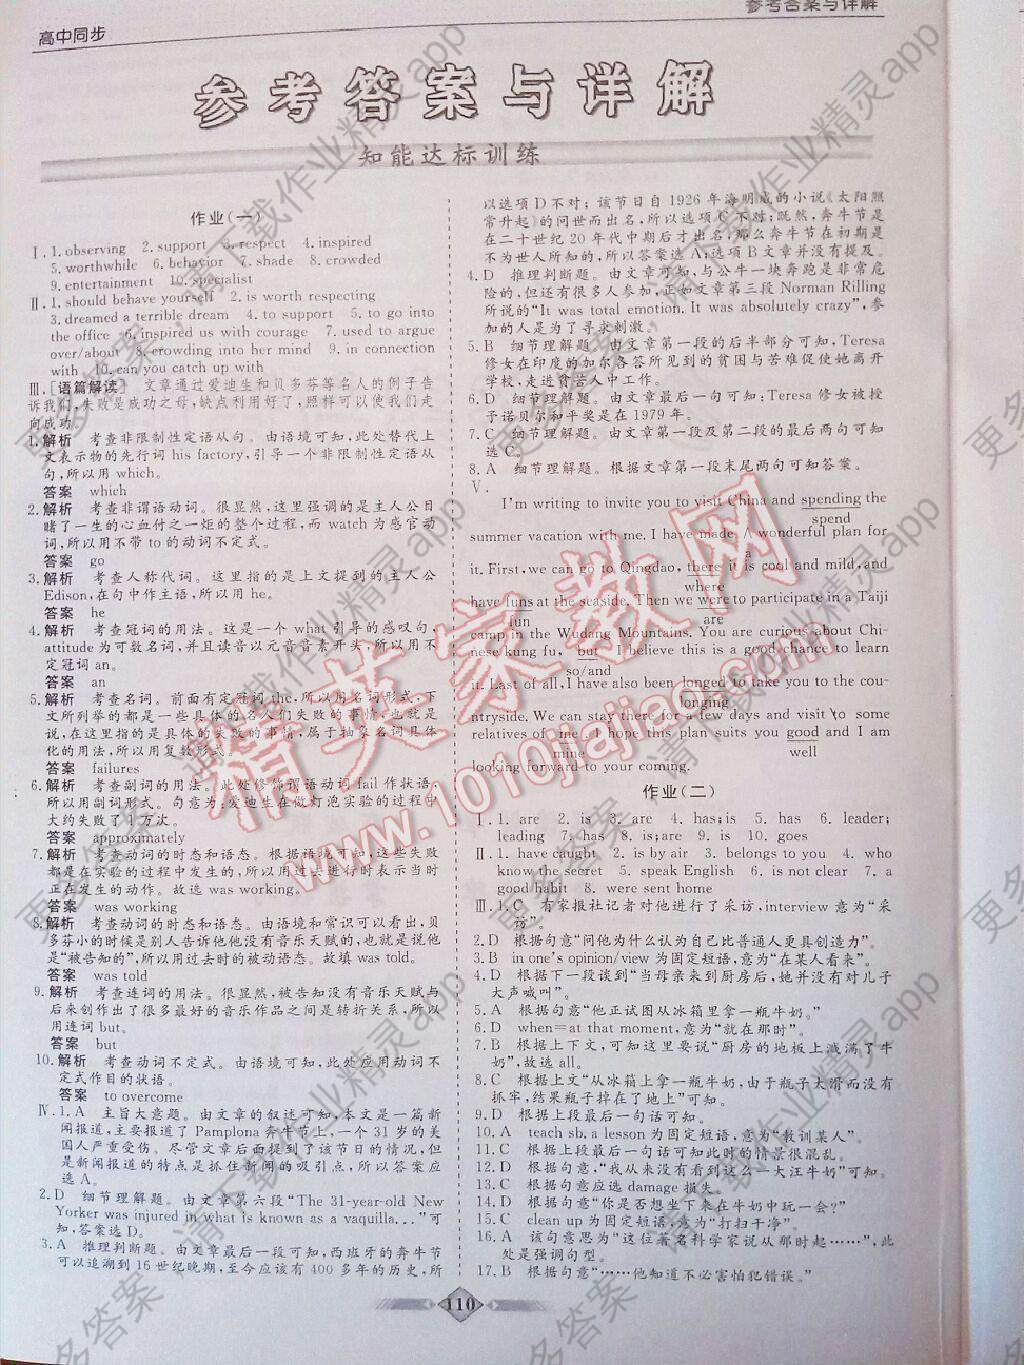 高中同步
参考答案与详解
参考答案与详解
知能达标训练
作业(一)
Ⅰ. 1. observing 2. support 3. respect 4. inspired
5. worthwhile 6. behavior 7. shade 8. crowded
9. entertainment 10. specialist
Ⅱ. 1. should behave yourself 2. is worth respecting
3. dreamed a terrible dream 4. to support 5. to go into
the office 6. inspired us with courage 7. used to argue
over/about 8. crowding into her mind 9. in connection
with 10. can you catch up with
Ⅲ. [语篇解读] 文章通过爱迪生和贝多芬等名人的例子告
诉我们,失败是成功之母,缺点利用好了,照样可以使我们走
向成功。
1. 解析 考查非限制性定语从句。由语境可知,此处替代上
文表示物的先行词 his factory,引导一个非限制性定语从
句,所以用 which。
答案 which
2. 解析 考查非谓语动词。很显然,这里强调的是主人公目
睹了一生的心血付之一炬的整个过程,而 watch 为感官动
词,所以用不带 to 的动词不定式。
答案 go
3. 解析 考查人称代词。这里指的是上文提到的主人公
Edison,在句中作主语,所以用 he。
答案 he
4. 解析 考查冠词的用法。这是一个 what 引导的感叹句,
attitude 为可数名词,并且读音以元音音素开头,所以用不
定冠词 an。
答案 an
5. 解析 考查名词。前面有定冠词 the,所以用名词形式,下
文所列举的都是一些具体的名人们失败的事情,也就是
说,在这里指的是具体的失败的事情,属于抽象名词具体
化的用法,所以用复数形式。
答案 failures
6. 解析 考查副词的用法。此处修饰谓语动词 fail 作状语,
所以用副词形式。句意为:爱迪生在做灯泡实验的过程中
大约失败了 1 万次。
答案 approximately
7. 解析 考查动词的时态和语态。根据语境可知,这些失败
都是在实验的过程中发生的,所以用过去进行时表示当时
正在发生的动作。故选 was working。
答案 was working
8. 解析 考查动词的时态和语态。由语境和常识可以看出,贝
多芬小的时候是别人告诉他他没有音乐天赋的,也就是说他
是“被告知的”,所以用过去时的被动语态。故填 was told。
答案 was told
9. 解析 考查连词的用法。很显然,被告知没有音乐天赋与
后来创作出了很多最好的音乐作品之间是转折关系,所以
用连词 but。
答案 but
10. 解析 考查动词不定式。由语境可知,此处应用动词不
定式作目的状语。
答案 to overcome
Ⅳ. 1. A 主旨大意题。由文章的叙述可知,本文是一篇新
闻报道,主要报道了 Pamplona 奔牛节上,一个 31 岁的美
国人严重受伤。尽管文章后面提到了该节日的情况,但
是新闻报道的特点是抓住新闻的吸引点,所以答案应
选 A。
2. D 细节理解题。由文章第六段“The 31-year-old New
Yorker was injured in what is known as a vaquilla...”可
知,答案选 D。
3. A 推理判断题。由文章最后一段可知,西班牙的奔牛节
可以追溯到 16 世纪晚期,至今应该有 400 多年的历史,所
以选项 D 不对;该节日自 1926 年海明威的小说《太阳照
常升起》的问世而出名,所以选项 C 不对;既然,奔牛节是
在二十世纪 20 年代中期后才出名,那么奔牛节在初期是
不为世人所知的,所以答案选 A;选项 B 文章并没有提及。
4. D 推理判断题。由文章可知,与公牛一块奔跑是非常危
险的,但还有很多人参加,正如文章第三段 Norman Rilling
所说的“It was total emotion. It was absolutely crazy”,参
加的人是为了寻求刺激。
5. B 细节理解题。由文章第一段的后半部分可知,Teresa
修女在印度的加尔各答所见到的贫困与苦难促使她离开
学校,走进贫苦人中工作。
6. D 细节理解题。由文章最后一句可知:Teresa 修女被授
予诺贝尔和平奖是在 1979 年。
7. C 细节理解题。由文章第一段及第二段的最后两句可知
选 C。
8. A 细节理解题。根据文章第一段末尾两句可知答案。
Ⅴ.
I'm writing to invite you to visit China and spending the
spend
summer vacation with me. I have made ∧ wonderful plan for
a
it. First, we can go to Qingdao, there it is cool and mild, and
where
have funs at the seaside. Then we were to participate in a Taiji
fun are
camp in the Wudang Mountains. You are curious about Chi-
nese kung fu, but I believe this is a good chance to learn
so/and
it. Last of all, I have also been longed to take you to the cou-
longing
ntryside. We can stay there for a few days and visit \to some
relatives of me. I hope this plan suits you good and I am
mine well
looking forward to your coming.
作业(二)
Ⅰ. 1. are 2. is 3. are 4. has;is 5. has 6. leader;
leading 7. has 8. is;are 9. is 10. goes
Ⅱ. 1. have caught 2. is by air 3. belongs to you 4. who
know the secret 5. speak English 6. is not clear 7. a
good habit 8. were sent home
Ⅲ. 1. C 有家报社记者对他进行了采访,interview 意为“采
访”。
2. D 根据句意“问他为什么认为自己比普通人更具创造力”。
3. B in one's opinion/view 为固定短语,意为“在某人看来”。
4. D 根据下一段谈到“当母亲来到厨房后,她并没有对儿子
大声喊叫”。
5. A 根据句意“他正试图从冰箱里拿一瓶牛奶。”
6. D when=at that moment,意为“就在那时”。
7. B 根据上下文,可知这里要说“厨房的地板上溅满了牛
奶”,故选 all。
8. C 根据上文“从冰箱上拿一瓶牛奶,由于瓶子太滑而没有
抓牢,结果瓶子掉在了地上”可知。
9. D 根据上段最后一句话可知。
10. A teach sb. a lesson 为固定短语,意为“教训某人”。
11. C 根据上段最后一句话可知此时的情景很混乱。
12. C 根据句意,“我从来没有看到这么一大汪牛奶”可知。
13. C 根据句意应选 damage 损失。
14. D 根据句意“你是否想坐下来在牛奶中玩一会?”
15. C clean up 为固定短语,意为“打扫干净”。
16. A 该句意思为“这位著名科学家说从那时起……”,此
处是强调句型。
17. B 根据句意“……他知道不必害怕犯错误。”
110
精英家教网
www.1010jiajiao.com
更多答案,请下载作业精灵app